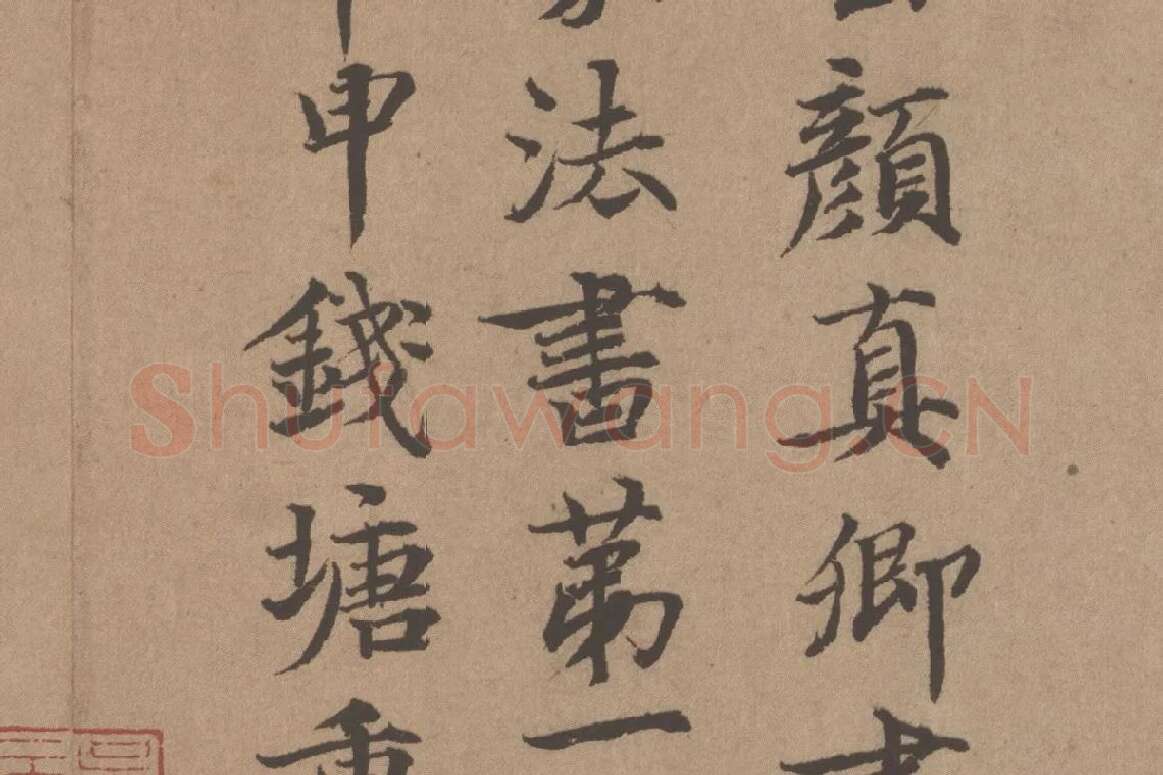 顔真卿書
法書苐一
申錢塘重
Shufawang.CN